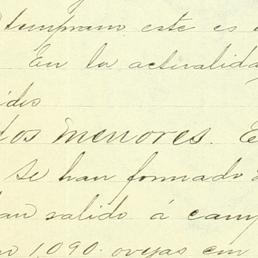 temprano este es
En la actualidad
idos
dos menores. E
se han formado
han salido á camp
1,090 ovejas con